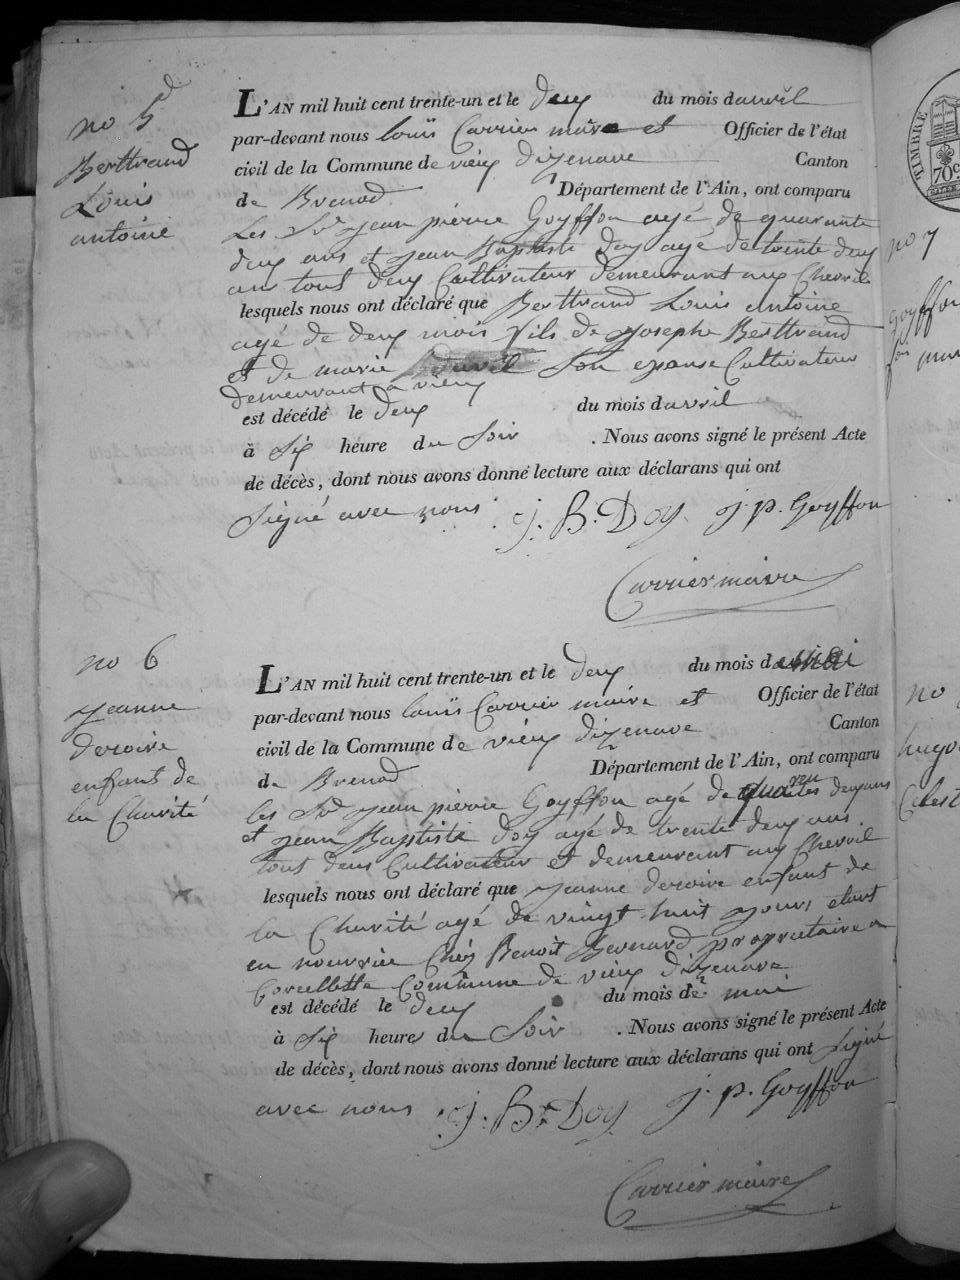 no 5
Berttrand
Louis
antoine
L'AN mil huit cent trente-un et le deux du mois d'avril
par-devant nous louïs Carrier maire et Officier de l'état
civil de la Commune de vieux dizenave Canton
de Brenod Département de l'Ain, ont comparu
Les Sr jean pierre Goyffon agé de quarante
deux ans et jean Baptiste doy agé de trente deux
ans tout deux Cultivateur demeurant aux Chevril
lesquels nous ont déclaré que Berttrand Louis antoine
agé de deux mois fils de josephe Berttrand
et de marie son epouse Cultivateur
demeurant a vieux
est décédé le deux du mois d'avril
à six heure du soir . Nous avons signé le présent Acte
de décès, dont nous avons donné lecture aux déclarans qui ont
signé avec nous j. B. Doy j. p. Goyffon
Carrier maire
no 6
jeanne
deroire
enfant de
la Charité
L'AN mil huit cent trente-un et le deux du mois de mai
par-devant nous louïs Carrier maire et Officier de l'état
civil de la Commune de vieux dizenave Canton
de Brenod Département de l'Ain, ont comparu
les Sr jean pierre Goyffon agé de deux ans
et jean Baptiste doy agé de trente deux ans
tout deux Cultivateur et demeurant aux Chevril
lesquels nous ont déclaré que jeanne deroire enfant de
la Charité agé de vingt huit jours etant
en nourrice Chez Benoit Bernard proprietaire a
Corcellette Commune de vieux dizenave
est décédé le deux du mois de mai
à six heures du soir . Nous avons signé le présent Acte
de décès, dont nous avons donné lecture aux déclarans qui ont signé
avec nous j. B. Doy j. p. Goyffon
Carrier maire
TIMBRE
70c
no 7
goyffon
no